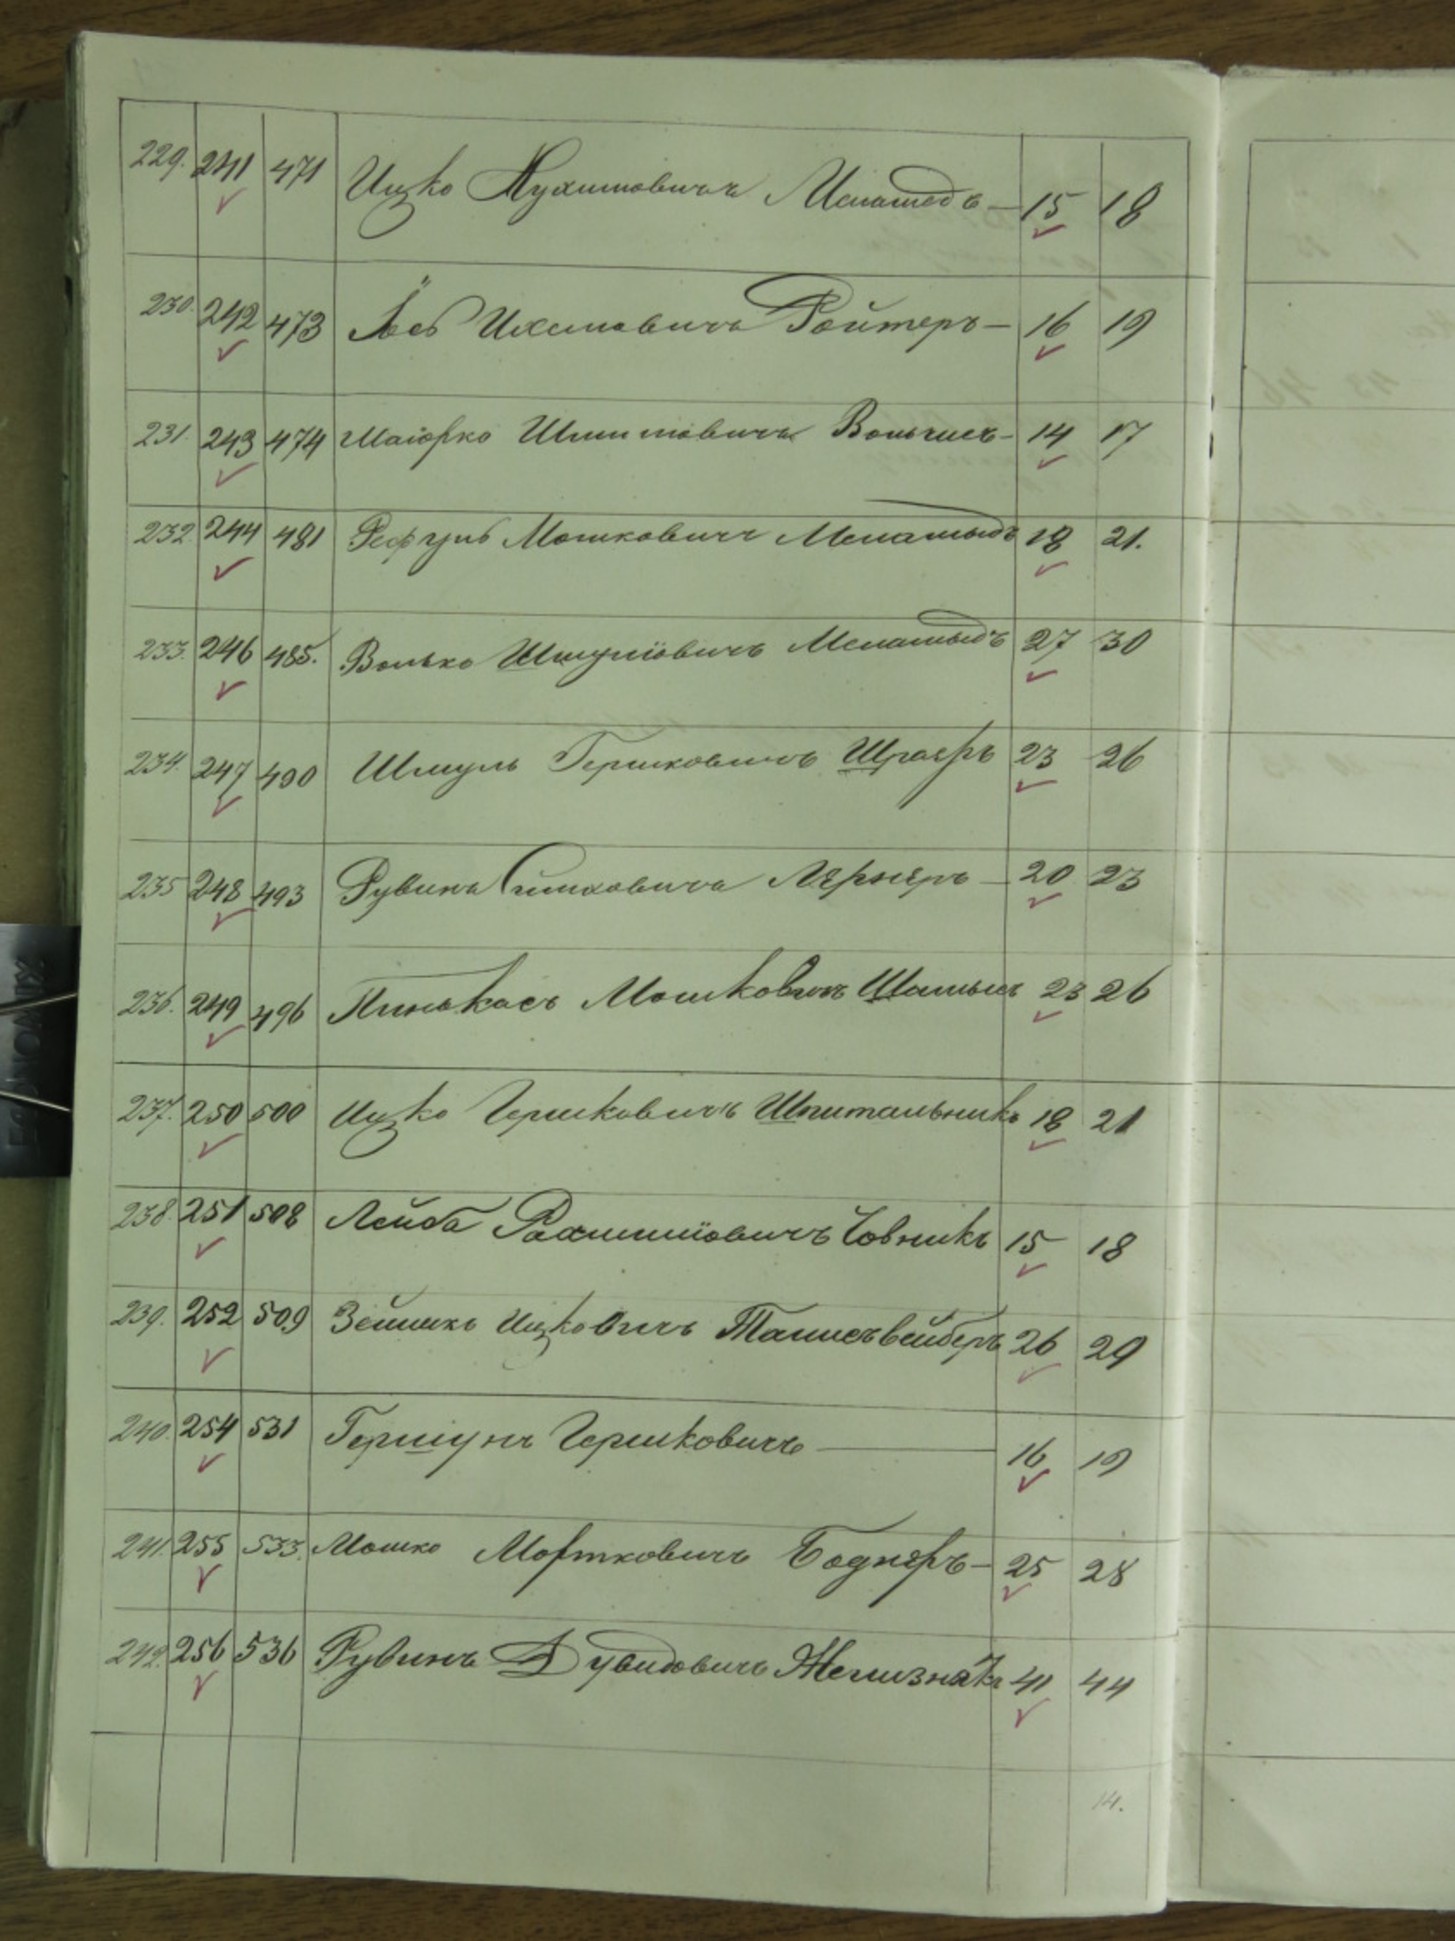 229. 241 471 Ицко Нухимовичъ Меламедъ — 15 18
230. 242 473 Лейб Ихелевичъ Ройтеръ — 16 19
231. 243 474 Маіорко Вольчисъ — 14 17
232 244 481 Мошковичъ Меламедъ 18 21.
233. 246 485. Волько Шмулёвичъ Меламедъ 27 30
234. 247 490 Шмуль Гершковичъ 23 26
235 248 493 Рувинъ Лернеръ — 20 23
236. 249 496 Пинькасъ Мошковичъ 23 26
237. 250 500 Ицко Гершковичъ Шпитальникъ 18 21
238. 251 508 Лейба Рахмилёвичъ Човникъ 15 18
239. 252 509 Ицковичъ 26 29
240. 254 531 Гершунъ Гершковичъ — 16 19
241. 255 533. Мошко Мортковичъ Боднеръ — 25 28
242. 256 536 Рувинъ Дувидовичъ Железнякъ 41 44
14.